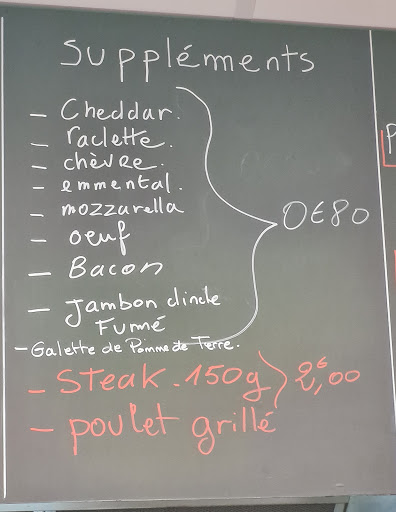 Suppléments
- Cheddar.
- raclette.
- chèvre.
- emmental.
- mozzarella
- oeuf
- Bacon
- Jambon dinde
Fumé
- Galette de Pomme de Terre.
0€80
- Steak. 150g
2€,00
- poulet grillé